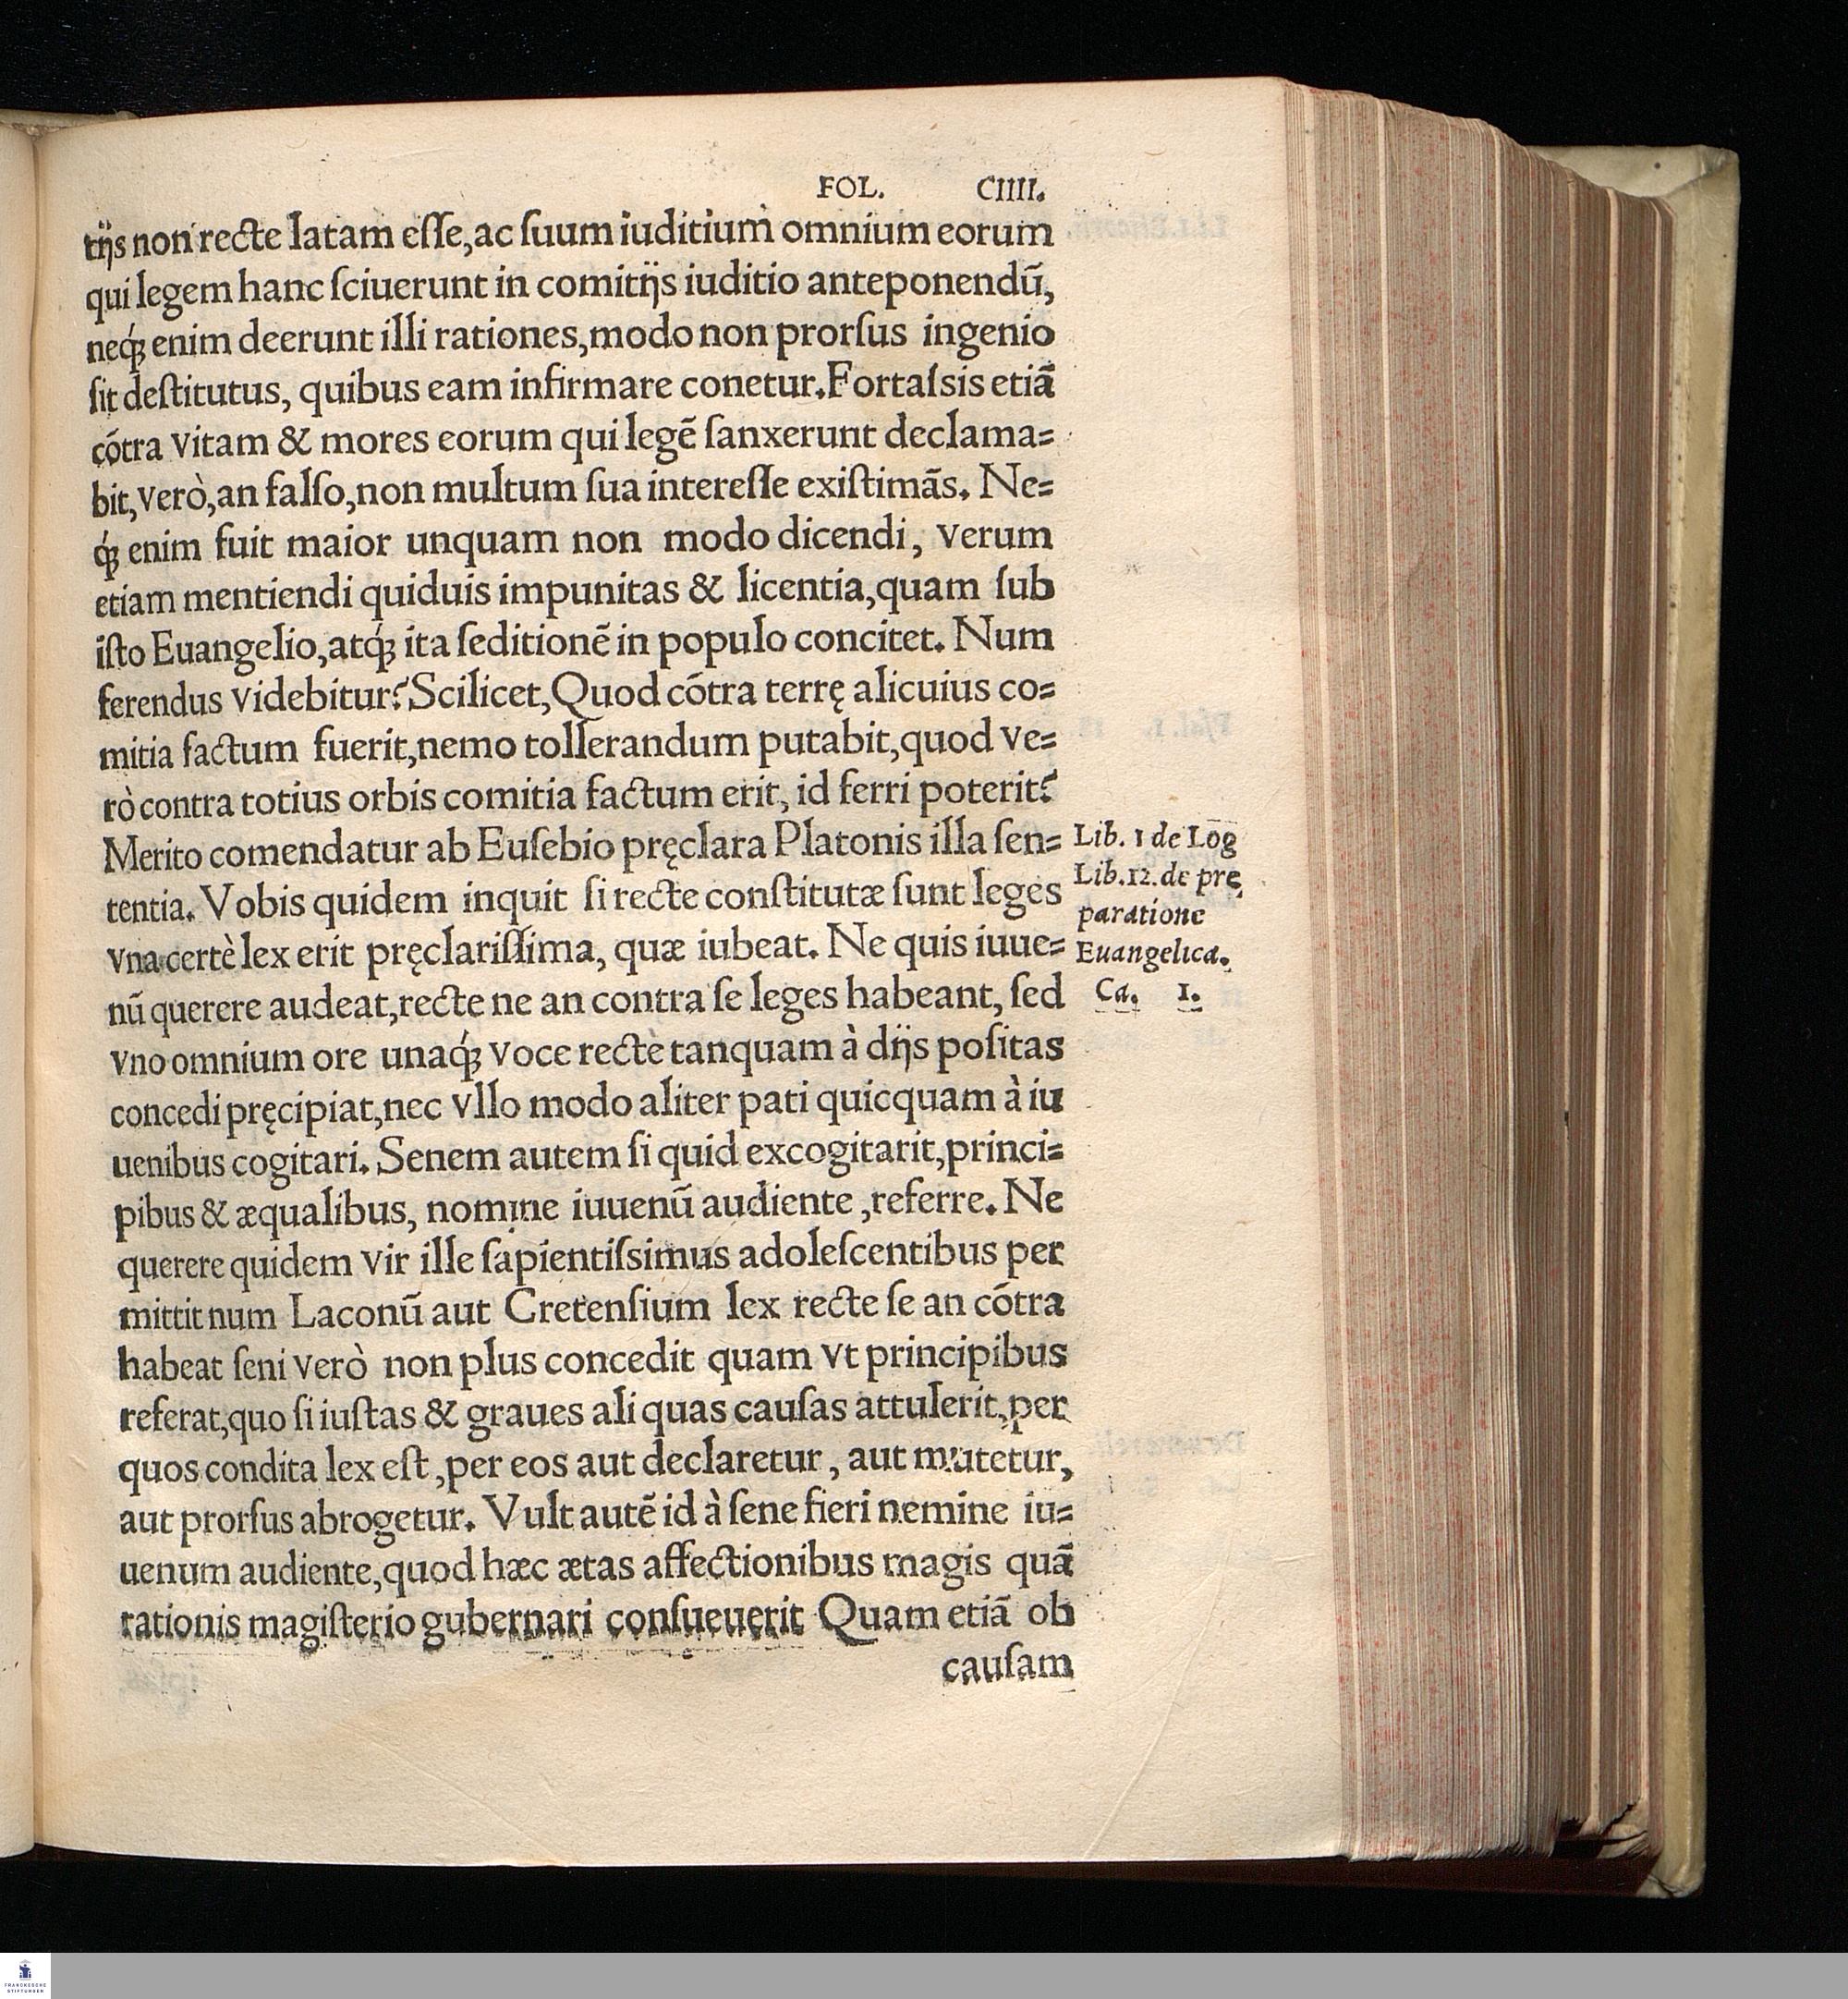 FOL. CIIII.
tijs non recte latam eſſe, ac ſuum iuditium omnium eorum
qui legem hanc ſciuerunt in comitijs iuditio anteponendũ,
neq́ꝫ enim deerunt illi rationes, modo non prorſus ingenio
ſit deſtitutus, quibus eam infirmare conetur. Fortaſsis etiã
cõtra vitam & mores eorum qui legẽ ſanxerunt declama=
bit, verò, an falſo, non multum ſua intereſſe exiſtimãs. Ne=
q́ꝫ enim fuit maior unquam non modo dicendi, verum
etiam mentiendi quiduis impunitas & licentia, quam ſub
iſto Euangelio, atq́ꝫ ita ſeditionẽ in populo concitet. Num
ferendus videbitur? Scilicet, Quod cõtra terrę alicuius co=
mitia factum fuerit, nemo tollerandum putabit, quod ve=
rò contra totius orbis comitia factum erit, id ferri poterit?
Merito comendatur ab Euſebio pręclara Platonis illa ſen=
tentia. Vobis quidem inquit ſi recte conſtitutæ ſunt leges
vna certè lex erit pręclariſſima, quæ iubeat. Ne quis iuue=
nũ querere audeat, recte ne an contra ſe leges habeant, ſed
vno omnium ore unaq́ꝫ voce rectè tanquam à dijs poſitas
concedi pręcipiat, nec vllo modo aliter pati quicquam à iu
uenibus cogitari. Senem autem ſi quid excogitarit, princi=
pibus & æqualibus, nomine iuuenũ audiente, referre. Ne
querere quidem vir ille ſapientiſsimus adoleſcentibus per
mittit num Laconũ aut Cretenſium lex recte ſe an cõtra
habeat ſeni verò non plus concedit quam vt principibus
referat, quo ſi iuſtas & graues ali quas cauſas attulerit, per
quos condita lex eſt, per eos aut declaretur, aut mutetur,
aut prorſus abrogetur. Vult autẽ id à ſene fieri nemine iu=
uenum audiente, quod hæc ætas affectionibus magis quã
rationis magiſterio gubernari conſueuerit Quam etiã ob
cauſam
Lib. 1 de Lōg
Lib. 12. de prę
paratione
Euangelica.
Ca. 1.
FRANCKESCHE
STIFTUNGEN